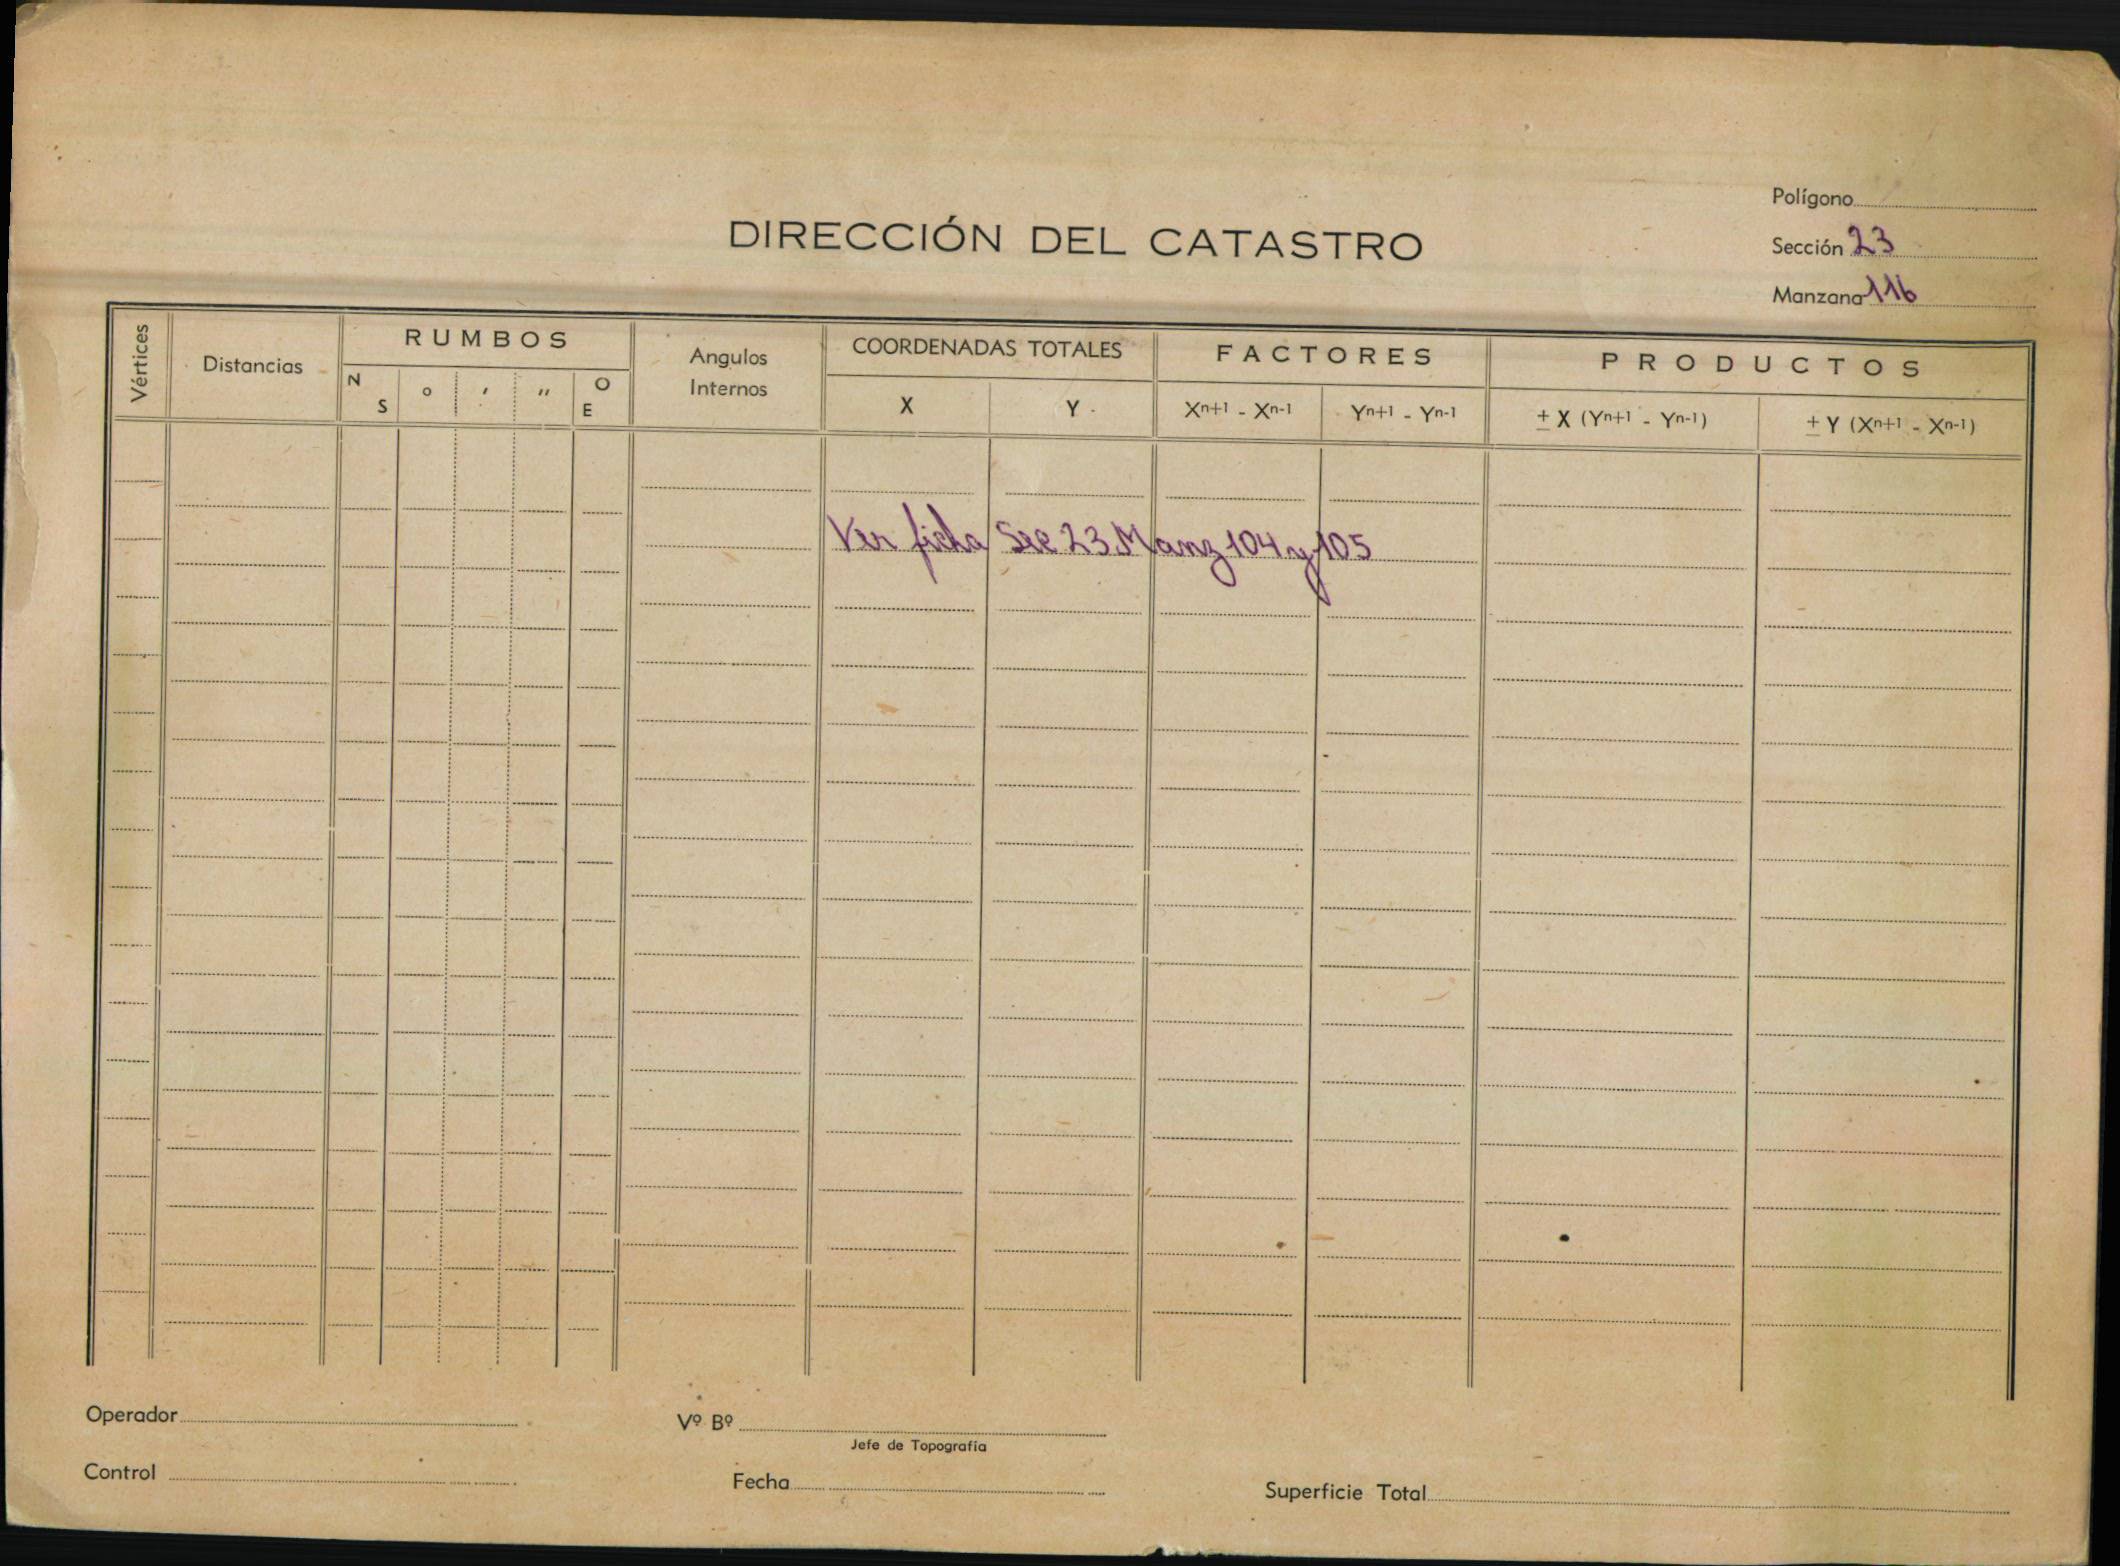 Polígono
DIRECCIÓN DEL CATASTRO
Sección 23
Manzana 116
Vértices
Distancias
RUMBOS
N S
° ′ ″
O E
Angulos Internos
COORDENADAS TOTALES
X Y
FACTORES
Xn+1 - Xn-1
Yn+1 - Yn-1
PRODUCTOS
± X (Yn+1 - Yn-1)
± Y (Xn+1 - Xn-1)
Ver ficha Sec 23 Manz 104 y 105
Operador
Vº Bº
Jefe de Topografía
Control
Fecha
Superficie Total